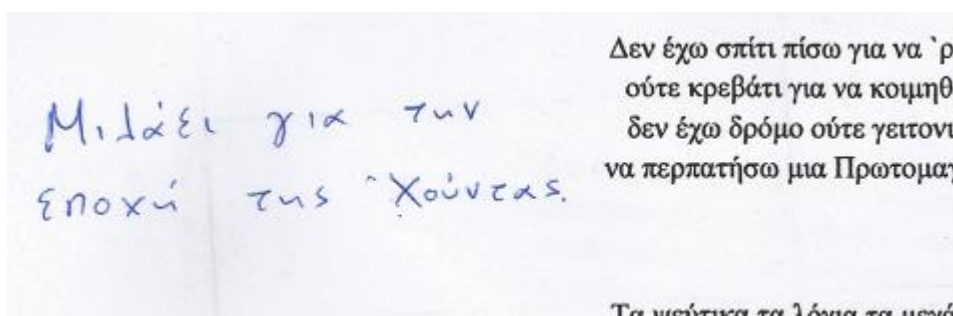 Μιλάει για την
εποχή της Χούντας.
Δεν έχω σπίτι πίσω για να `ρ
ούτε κρεβάτι για να κοιμηθ
δεν έχω δρόμο ούτε γειτονι
να περπατήσω μια Πρωτομαγ
Τα ψεύτικα τα λόγια τα μεγά